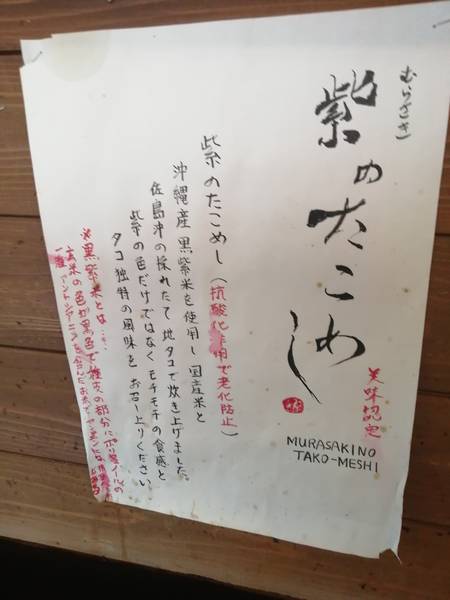 むらさき
紫のたこめし
美味認定
MURASAKINO
TAKO-MESHI
紫のたこめし(抗酸化作用で老化防止)
沖縄産黒紫米を使用し国産米と
佐島沖の採れたて地タコで炊き上げました。
紫の色だけではなくモチモチの食感と
タコ独特の風味をお召し上りください
※黒紫米とは…
玄米の色が黒色で種皮の部分にポリフェノールの
一種アントシアニンを含んだお米で